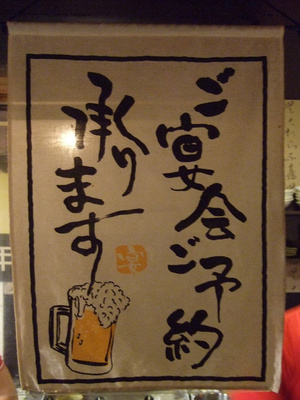 ご宴会ご予約
承ります
宴